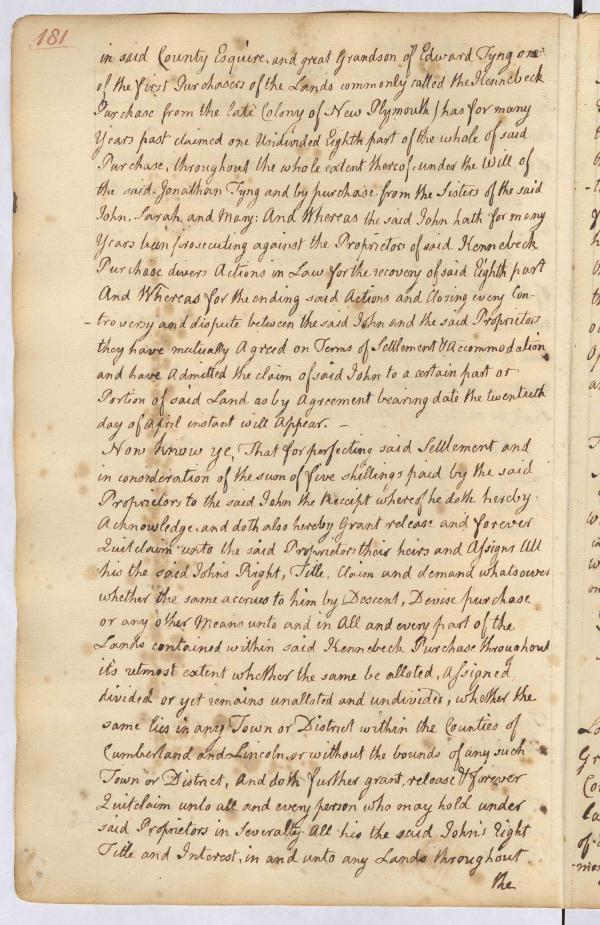 181
in said County Esquire, and great Grandson of Edward Tyng one
of the first Purchasers of the Lands commonly called the Kennebeck
Purchase from the late Colony of New Plymouth) has for many
Years past claimed one Undivided Eighth part of the whole of said
Purchase, throughout the whole extent thereof, under the Will of
the said Jonathan Tyng and by purchase from the Sisters of the said
John, Sarah and Mary: And Whereas the said John hath for many
Years been prosecuting against the Proprietors of said Kennebeck
Purchase divers Actions in Law for the recovery of said Eighth part
And Whereas for the ending said Actions and Closing every Con-
-troversy and dispute between the said John and the said Proprietors
they have mutually Agreed on Terms of Settlement & Accommodation
and have Admitted the claim of said John to a certain part or
Portion of said Land as by Agreement bearing date the twentieth
day of April instant will Appear. —
Now know ye, That for perfecting said Settlement and
in consideration of the sum of five shillings paid by the said
Proprietors to the said John the Receipt whereof he doth hereby
Acknowledge, and doth also hereby Grant release and forever
Quitclaim unto the said Proprietors their heirs and Assigns All
his the said John's Right, Title, Claim and demand whatsoever
whether the same accrues to him by Descent, Devise purchase
or any other Means unto and in All and every part of the
Lands contained within said Kennebeck Purchase throughout
its utmost extent whether the same be alloted, Assigned,
divided or yet remains unalloted and undivided, whether the
same lies in any Town or District within the Counties of
Cumberland and Lincoln, or without the bounds of any such
Town or District, And doth further grant, release & forever
Quitclaim unto all and every person who may hold under
said Proprietors in Severalty All his the said John's Right
Title and Interest, in and unto any Lands throughout
the